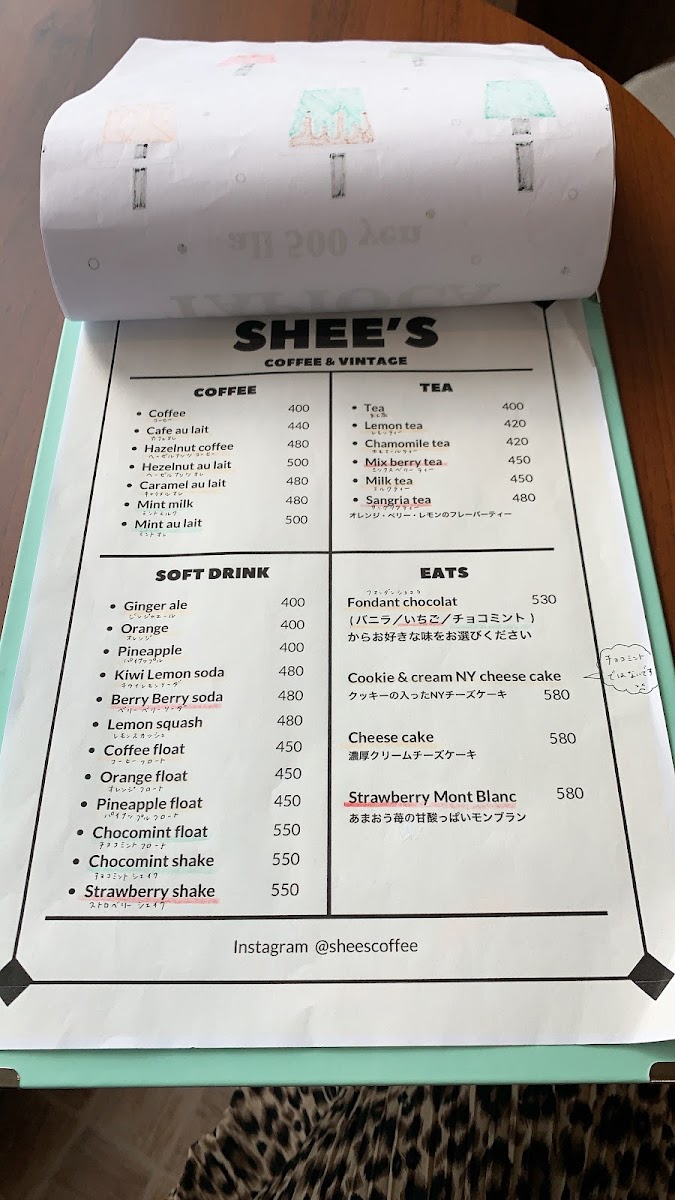 all 500 yen
TAPIOCA
SHEE'S
COFFEE & VINTAGE
COFFEE
Coffee 400
コーヒー
Cafe au lait 440
カフェオレ
Hazelnut coffee 480
ヘーゼルナッツ コーヒー
Hezelnut au lait 500
ヘーゼルナッツ オレ
Caramel au lait 480
キャラメル オレ
Mint milk 480
ミントミルク
Mint au lait 500
ミント オレ
TEA
Tea 400
Lemon tea 420
レモンティー
Chamomile tea 420
カモミールティー
Mix berry tea 450
ミックスベリー ティー
Milk tea 450
ミルクティー
Sangria tea 480
サングリアティー
オレンジ・ベリー・レモンのフレーバーティー
SOFT DRINK
Ginger ale 400
ジンジャエール
Orange 400
オレンジ
Pineapple 400
パイナップル
Kiwi Lemon soda 480
キウイレモンソーダ
Berry Berry soda 480
ベリーベリーソーダ
Lemon squash 480
レモンスカッシュ
Coffee float 450
コーヒーフロート
Orange float 450
オレンジフロート
Pineapple float 450
パイナップルフロート
Chocomint float 550
チョコミント フロート
Chocomint shake 550
チョコミント シェイク
Strawberry shake 550
ストロベリー シェイク
EATS
フォンダンショコラ
Fondant chocolat 530
(バニラ／いちご／チョコミント)
からお好きな味をお選びください
Cookie & cream NY cheese cake
クッキーの入ったNYチーズケーキ 580
チョコミント
ではないです
Cheese cake 580
濃厚クリームチーズケーキ
Strawberry Mont Blanc 580
あまおう苺の甘酸っぱいモンブラン
Instagram @sheescoffee